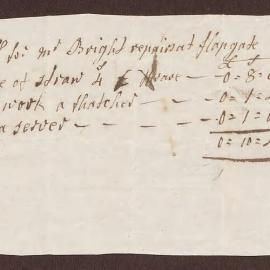 for Mr Bright repairs at flapgate
£ s
e of straw 4 £ thrave — 0=8=
work a thatcher — — 0=1=
a server — — — 0=1=0
0=10=